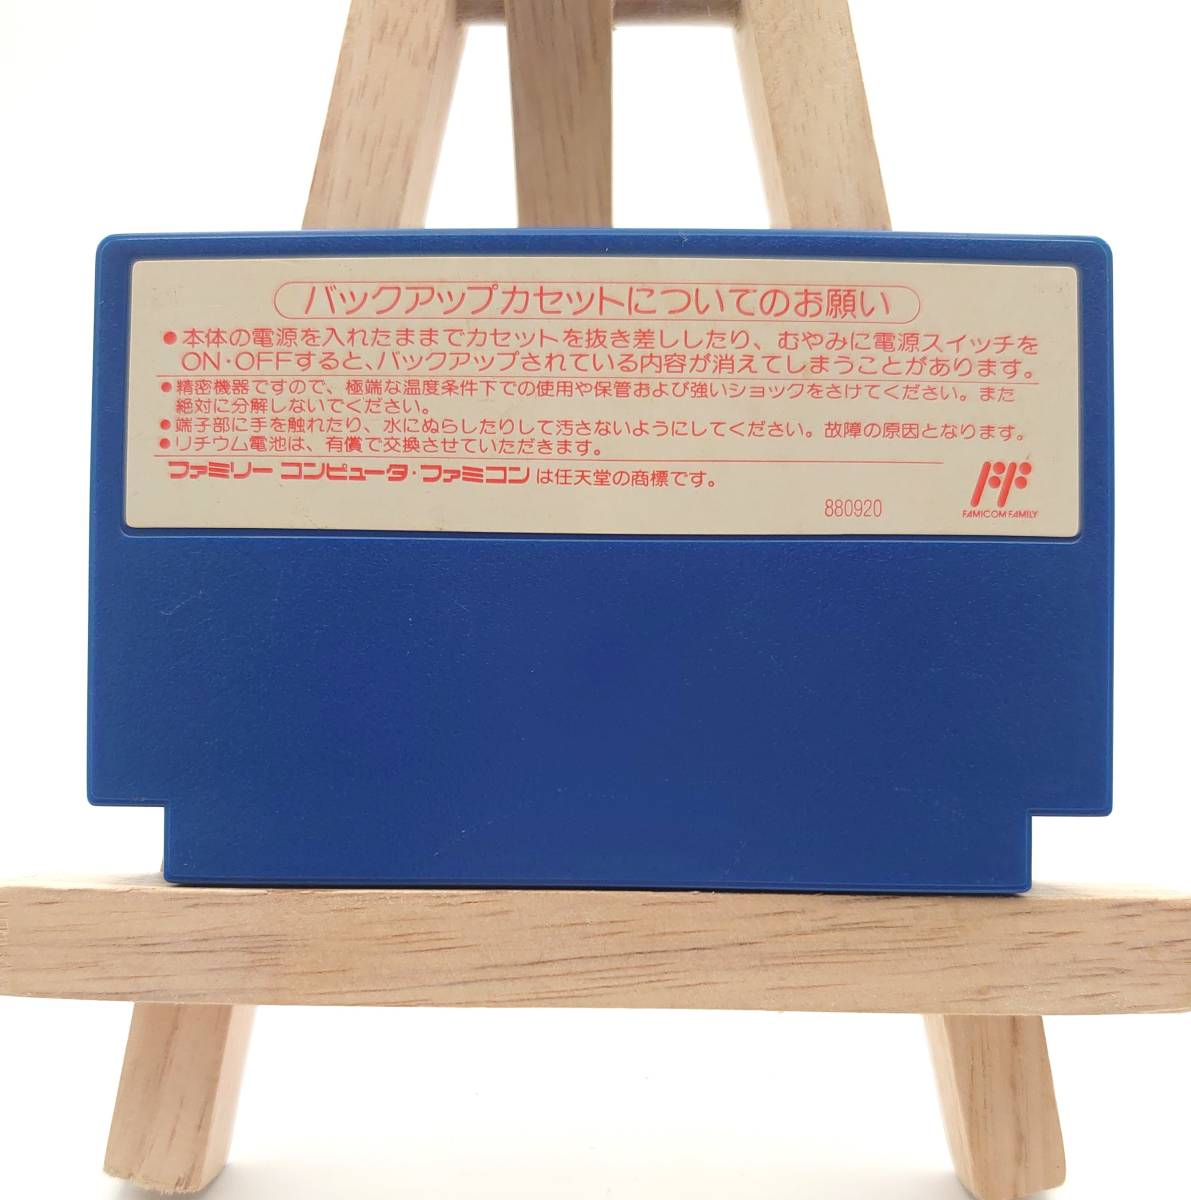 バックアップカセットについてのお願い
●本体の電源を入れたままでカセットを抜き差ししたり、むやみに電源スイッチを
ON・OFFすると、バックアップされている内容が消えてしまうことがあります。
●精密機器ですので、極端な温度条件下での使用や保管および強いショックをさけてください。また
絶対に分解しないでください。
●端子部に手を触れたり、水にぬらしたりして汚さないようにしてください。故障の原因となります。
●リチウム電池は、有償で交換させていただきます。
ファミリー コンピュータ・ファミコンは任天堂の商標です。
880920
FAMICOM FAMILY